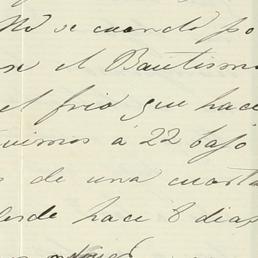 No se cuando po
se el Bautismo
el frio que hace
uimos á 22 bajo
s de una cuarta
desde hace 8 dias